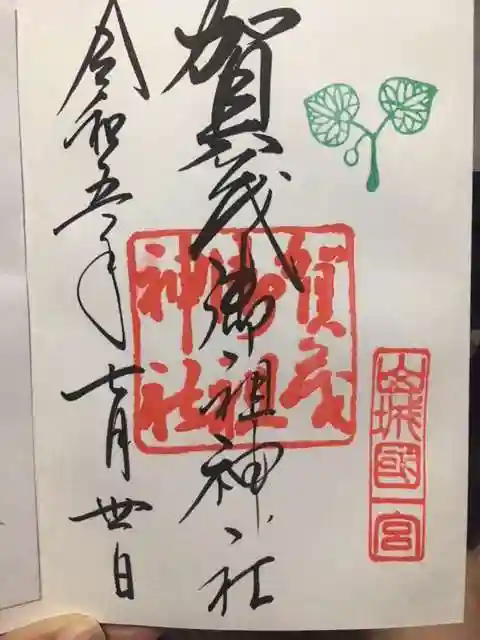 山城國一宮
賀茂御祖神社
賀茂
御祖
神社
令和五年七月丗日